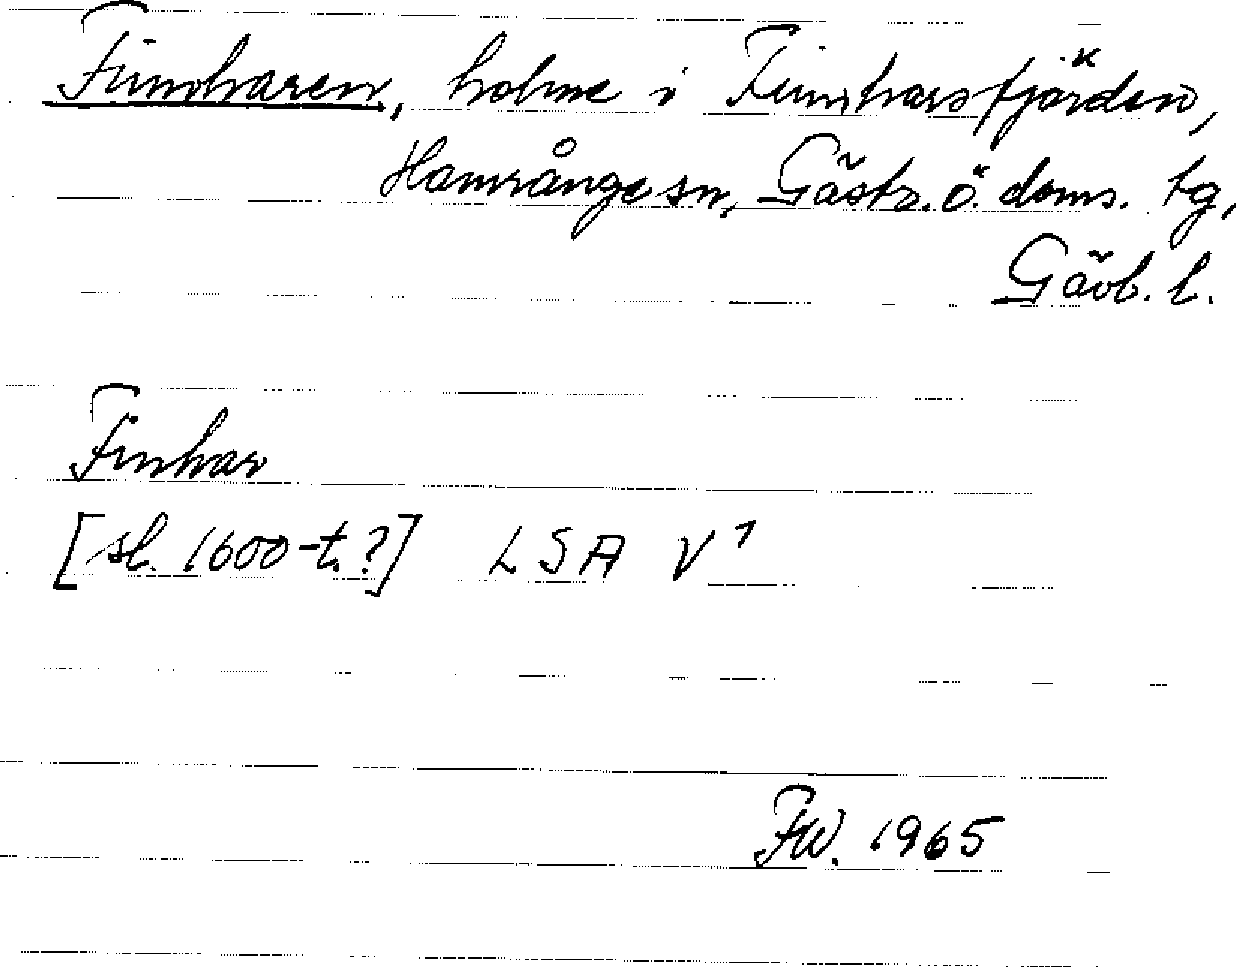 Finnharen, holme i Finnharsfjärden,
Hamrånge sn, Gästr. ö. doms. tg,
Gävl. l.
Finhar
[sl. 1600-t.?] LSA V 1
FW. 1965